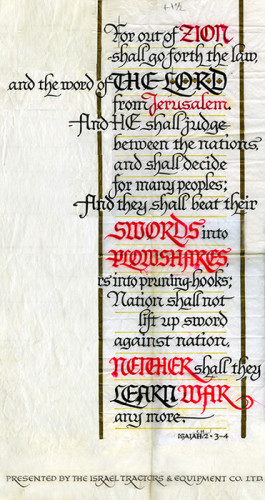 +1½
For out of ZION
shall go forth the law,
and the word of THE LORD
from Jerusalem.
And HE shall judge
between the nations,
and shall decide
for many peoples;
And they shall beat their
SWORDS into
PLOWSHARES,
rs into pruning-hooks;
Nation shall not
lift up sword
against nation,
NEITHER shall they
LEARN WAR
any more.
ISAIAH 2·3-4
PRESENTED BY THE ISRAEL TRACTORS & EQUIPMENT CO. LTD.